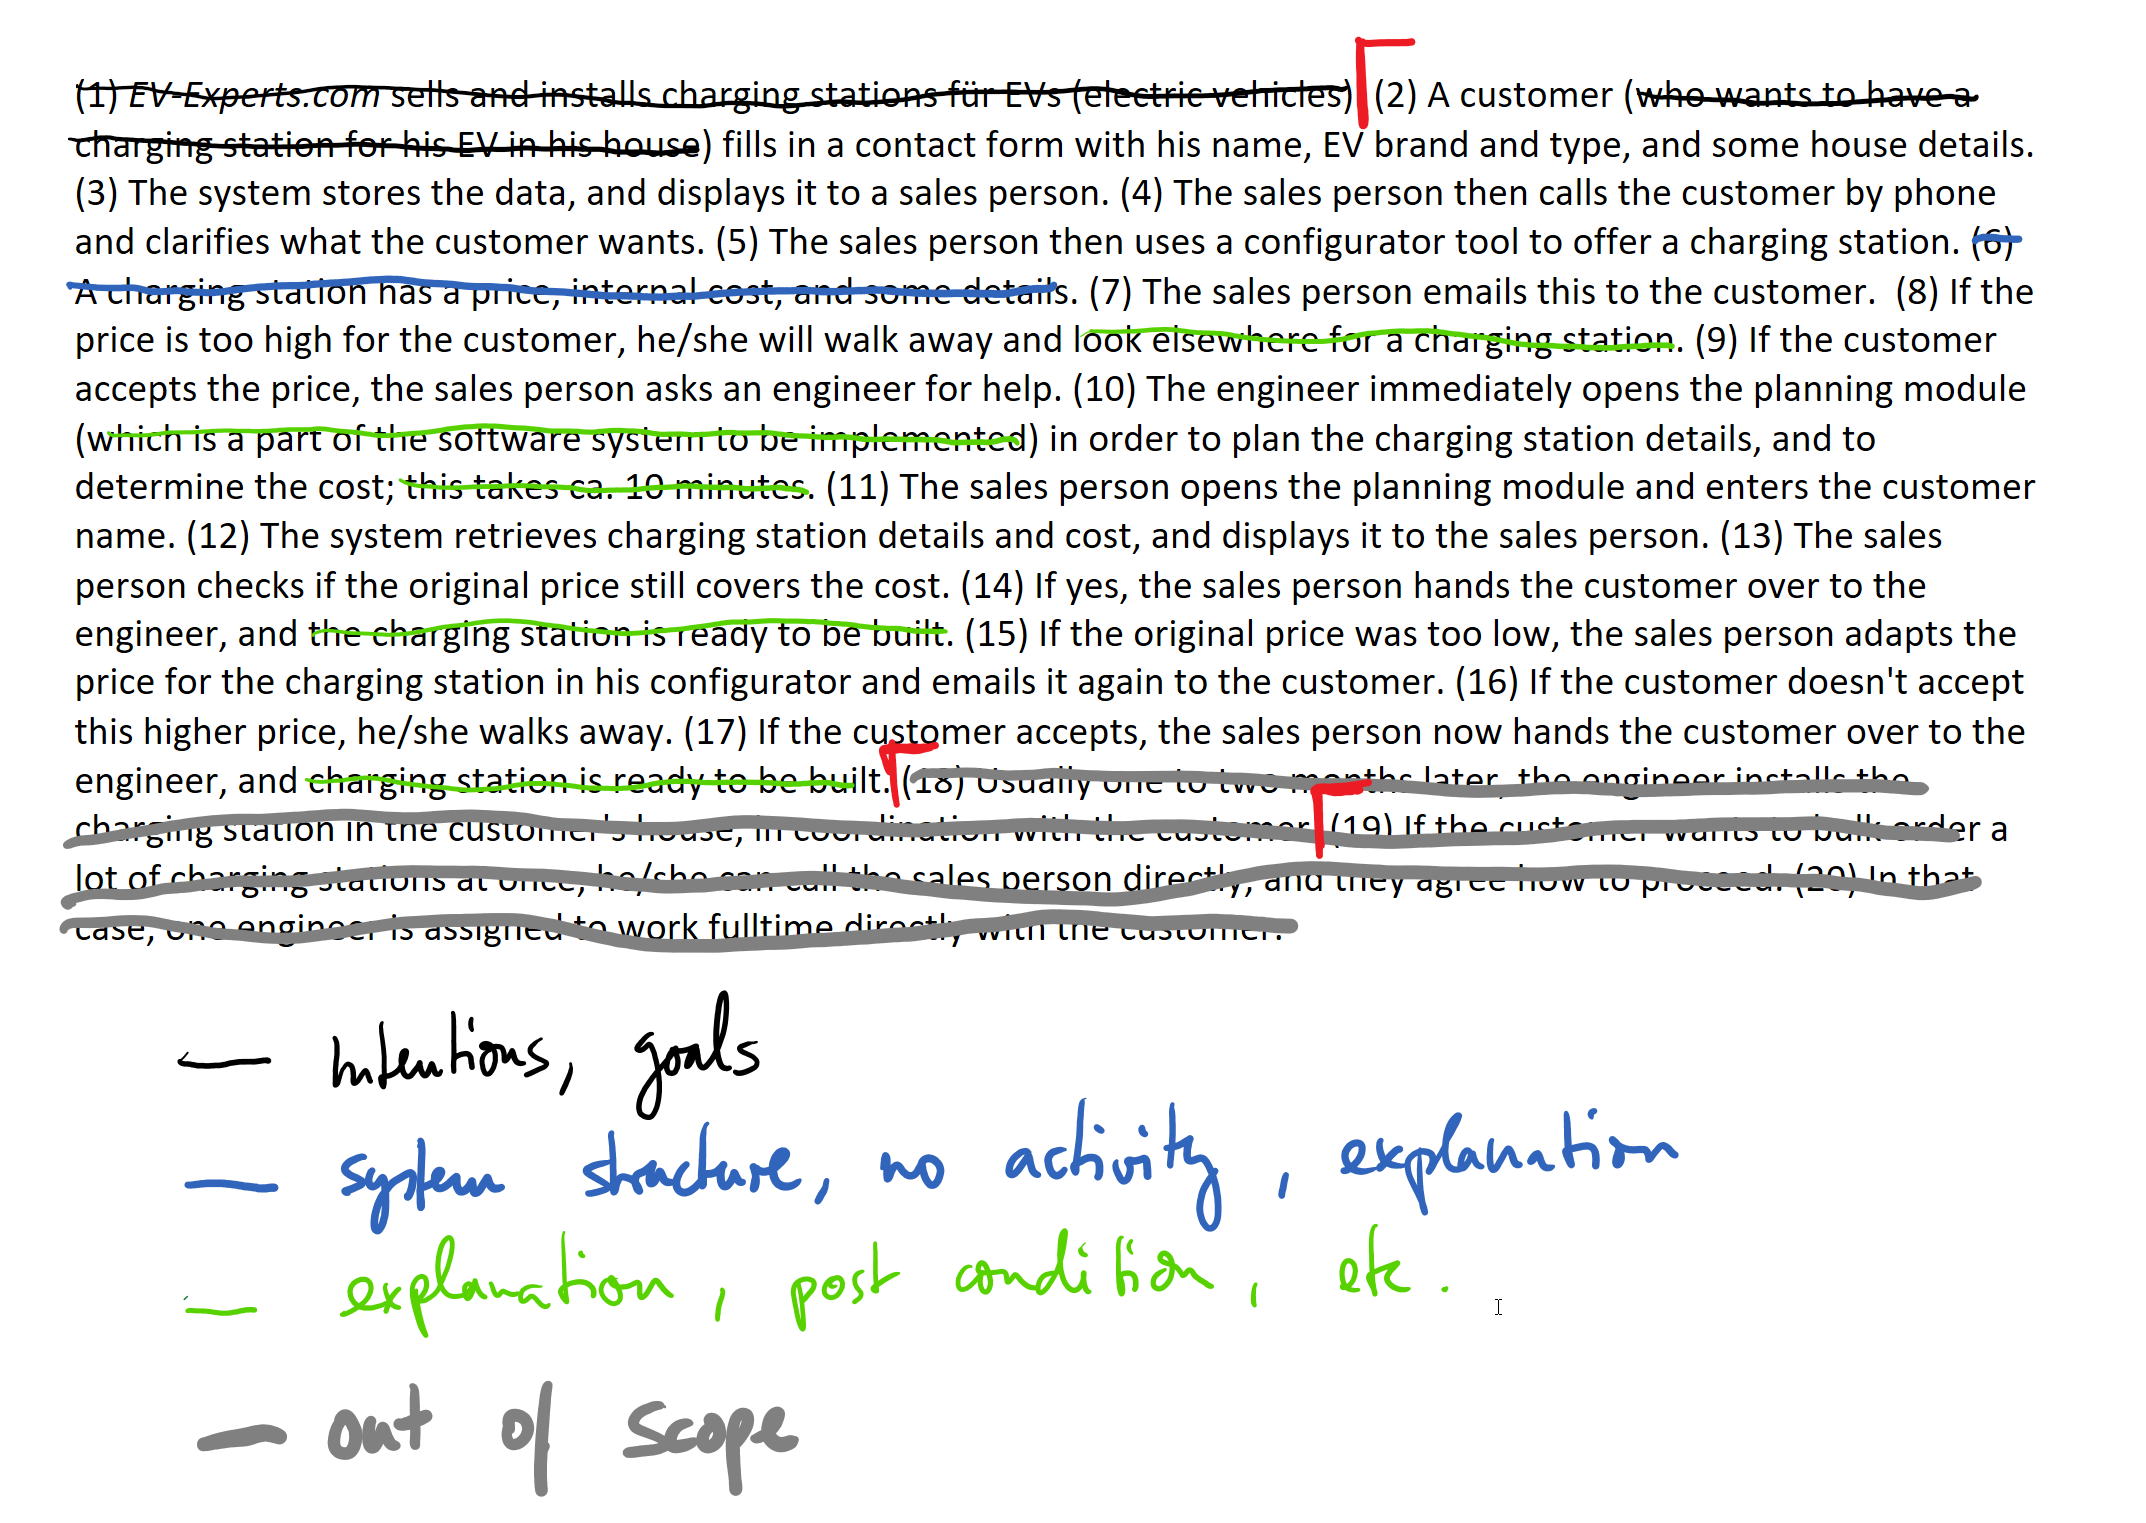 (1) EV-Experts.com sells and installs charging stations für EVs (electric vehicles) (2) A customer (who wants to have a
charging station for his EV in his house) fills in a contact form with his name, EV brand and type, and some house details.
(3) The system stores the data, and displays it to a sales person. (4) The sales person then calls the customer by phone
and clarifies what the customer wants. (5) The sales person then uses a configurator tool to offer a charging station. (6)
A charging station has a price, internal cost, and some details. (7) The sales person emails this to the customer.  (8) If the
price is too high for the customer, he/she will walk away and look elsewhere for a charging station. (9) If the customer
accepts the price, the sales person asks an engineer for help. (10) The engineer immediately opens the planning module
(which is a part of the software system to be implemented) in order to plan the charging station details, and to
determine the cost; this takes ca. 10 minutes. (11) The sales person opens the planning module and enters the customer
name. (12) The system retrieves charging station details and cost, and displays it to the sales person. (13) The sales
person checks if the original price still covers the cost. (14) If yes, the sales person hands the customer over to the
engineer, and the charging station is ready to be built. (15) If the original price was too low, the sales person adapts the
price for the charging station in his configurator and emails it again to the customer. (16) If the customer doesn't accept
this higher price, he/she walks away. (17) If the customer accepts, the sales person now hands the customer over to the
engineer, and charging station is ready to be built. (18) Usually one to two months later, the engineer installs the
charging station in the customer's house, in coordination with the customer. (19) If the customer wants to bulk order a
lot of charging stations at once, he/she can call the sales person directly, and they agree how to proceed. (20) In that
case, one engineer is assigned to work fulltime directly with the customer.
Intentions, goals
system structure, no activity, explanation
explanation, post condition, etc.
out of scope